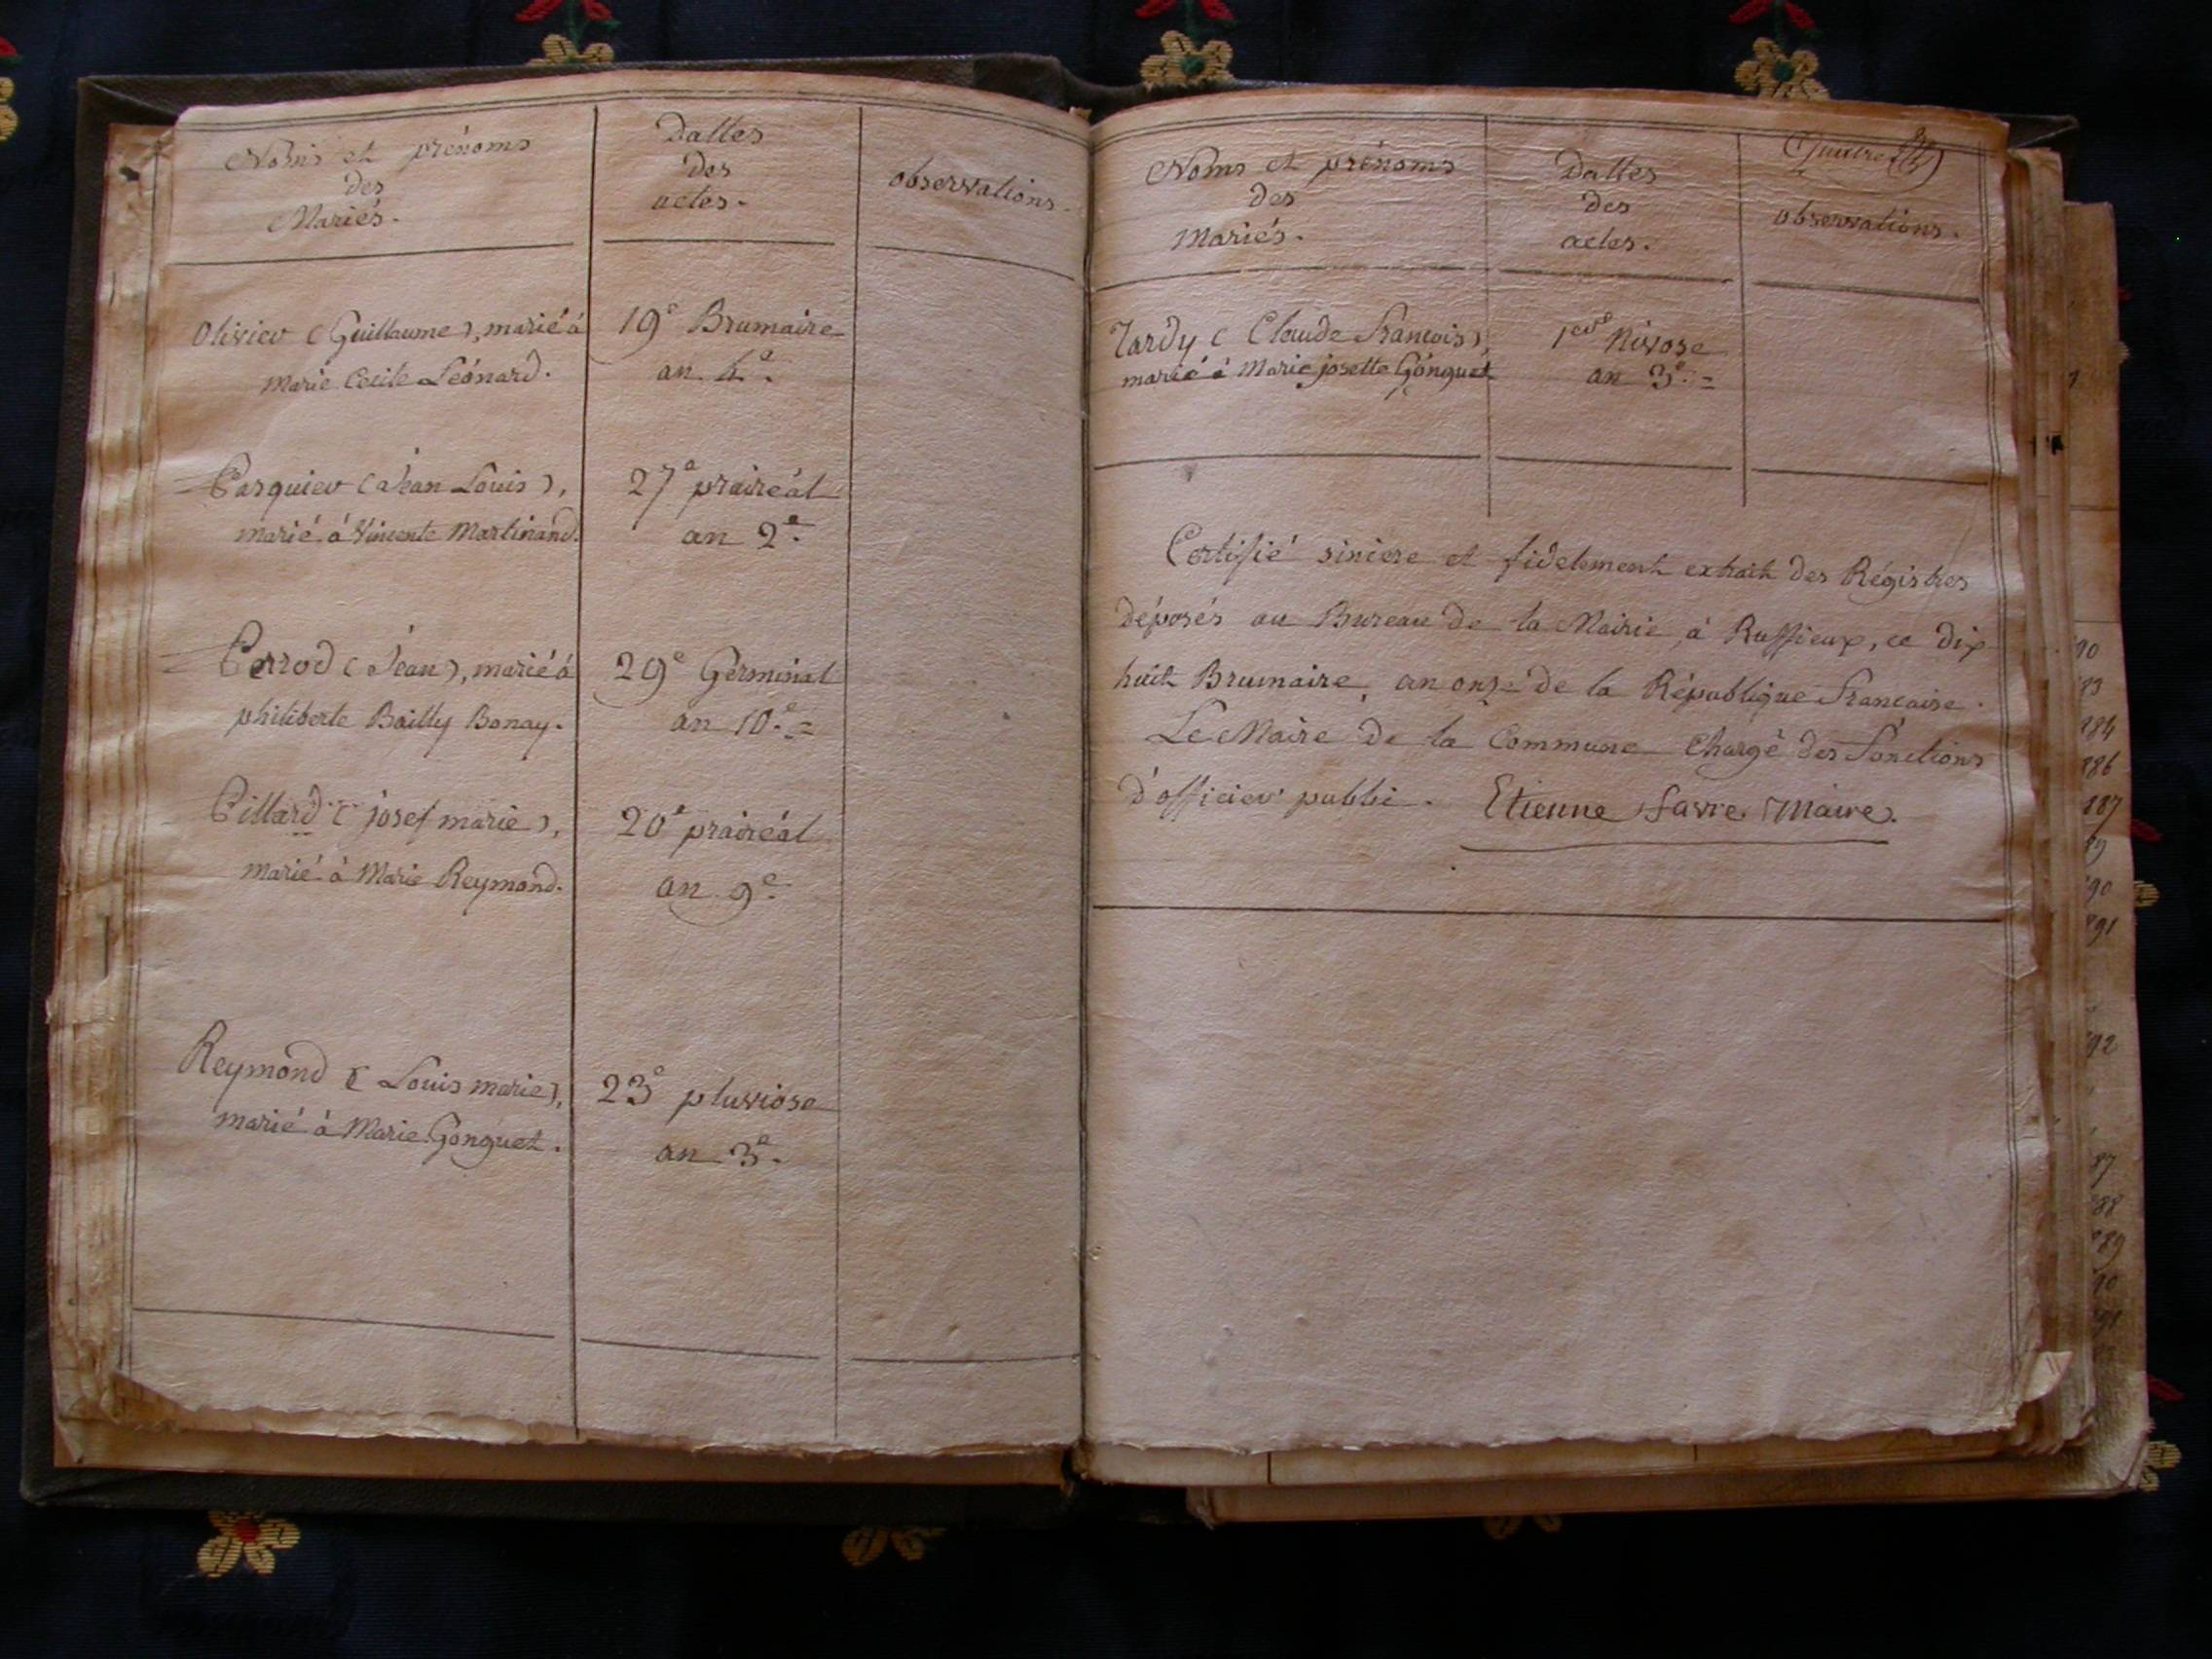 Noms et prénoms
des
Mariés.
Dattes
des
actes.
observations.
Olivier (Guillaume), marié à
marie Cecile Léonard.
19e Brumaire
an 4e.
Pasquier (Jean Louis),
marié à Vincente Martinand.
27e prairéal
an 2e.
Perrod (Jean), marié à
philiberte Bailly Bonay.
29e Germinal
an 10e.=
Pillard (josef marie),
marié à Marie Reymond.
20e prairéal
an 9e.
Reymond (Louis marie),
marié à Marie Gonguet.
23e pluviose
an 3e.
Noms et prénoms
des
Mariés.
Dattes
des
actes.
observations.
Tardy (Claude François),
marié à Marie josette Gonguet
1er Nivose
an 3e.=
Certifié sincere et fidelement extrait des Régistres
déposés au Bureau de la Mairie, à Ruffieux, ce dix
huit Brumaire, an onze de la République Francaise.
Le Maire de la Commune Chargé des Fonctions
d'officier public. Etienne favre Maire.
90
83
184
186
187
89
90
91
92
87
88
89
90
91